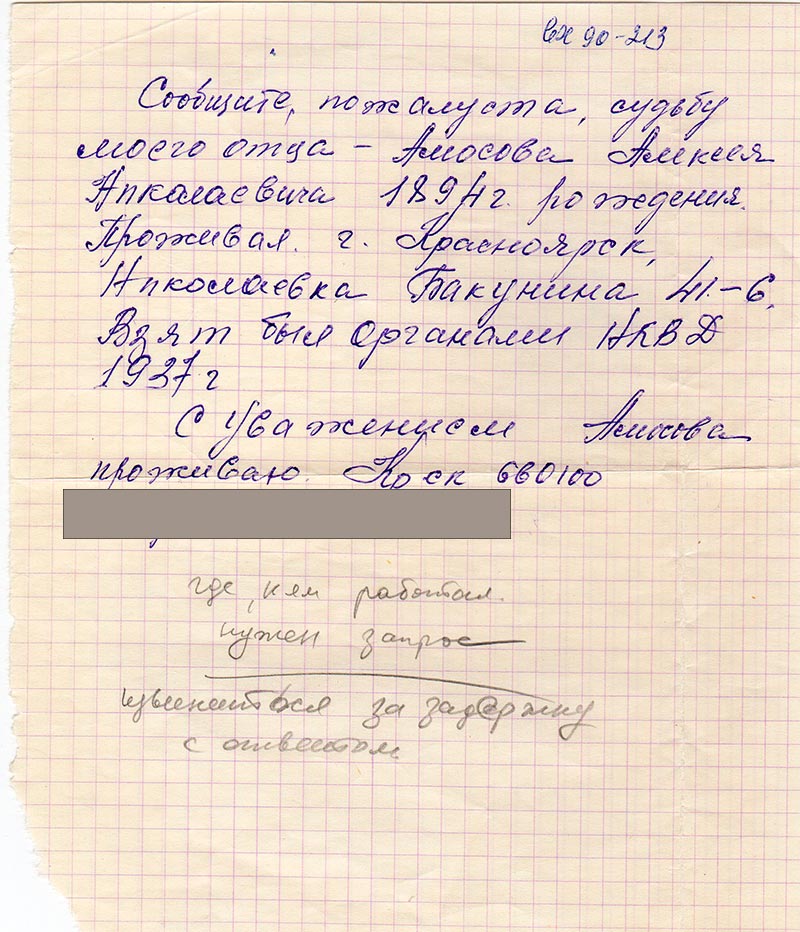 вх 90-213
Сообщите, пожалуста, судьбу
моего отца – Амосова Алексея
Николаевича 1894 г. рождения.
Проживал. г. Красноярск,
Николаевка Бакунина 41-6.
Взят был органами НКВД
1937 г
С уважением Амосова
проживаю. Кр ск 660100
где, кем работал.
нужен запрос
извиниться за задержку
с ответом